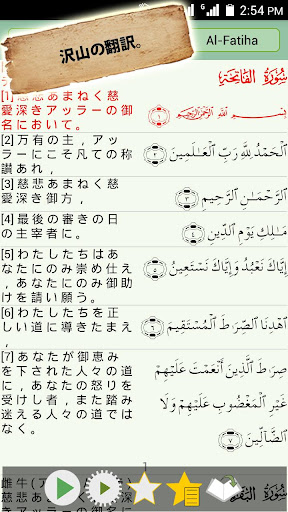 2:54 PM
沢山の翻訳。
Al-Fatiha
سُورَةُ الفَاتِحَةِ
[1] 慈悲あまねく慈
愛深きアッラーの御
名において。
بِسْمِ ٱللَّهِ ٱلرَّحْمَـٰنِ ٱلرَّحِيمِ ١
[2] 万有の主，アッ
ラーにこそ凡ての称
讃あれ，
ٱلْحَمْدُ لِلَّهِ رَبِّ ٱلْعَـٰلَمِينَ ٢
[3] 慈悲あまねく慈
愛深き御方，
ٱلرَّحْمَـٰنِ ٱلرَّحِيمِ ٣
[4] 最後の審きの日
の主宰者に。
مَـٰلِكِ يَوْمِ ٱلدِّينِ ٤
[5] わたしたちはあ
なたにのみ崇め仕え
，あなたにのみ御助
けを請い願う。
إِيَّاكَ نَعْبُدُ وَإِيَّاكَ نَسْتَعِينُ ٥
[6] わたしたちを正
しい道に導きたまえ
，
ٱهْدِنَا ٱلصِّرَٰطَ ٱلْمُسْتَقِيمَ ٦
[7] あなたが御恵み
を下された人々の道
に，あなたの怒りを
受けし者，また踏み
迷える人々の道では
なく。
صِرَٰطَ ٱلَّذِينَ أَنْعَمْتَ عَلَيْهِمْ
غَيْرِ ٱلْمَغْضُوبِ عَلَيْهِمْ وَلَا
ٱلضَّآلِّينَ ٧
1